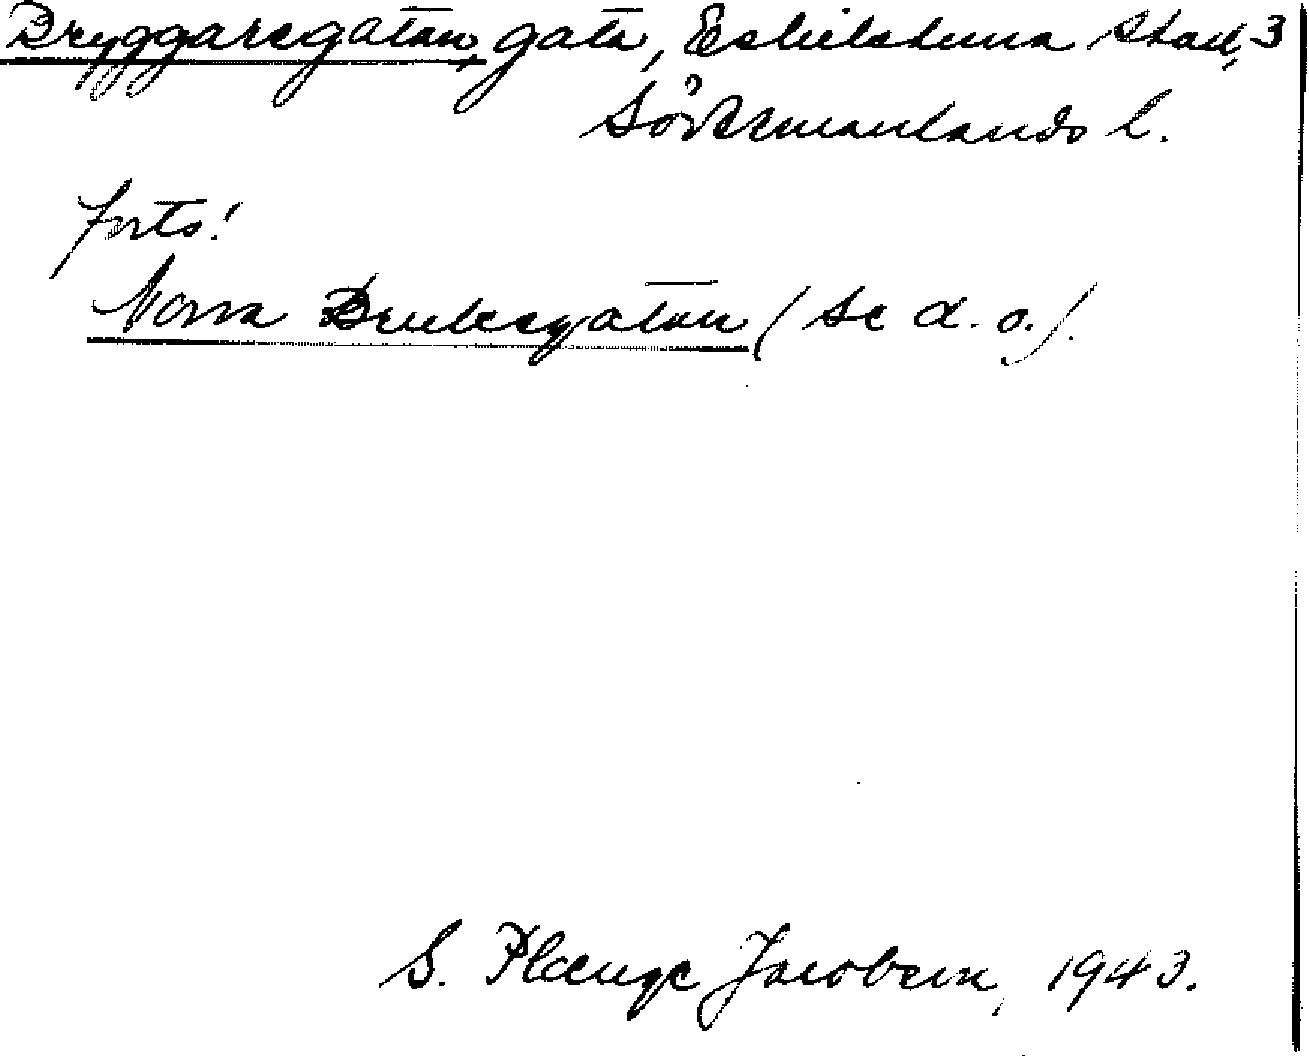 Bryggaregatan, gata, Eskilstuna stad, 3
Södermanlands l.
forts!
Norra Bruksgatan (se d. o.).
S. Plænge Jacobson, 1943.